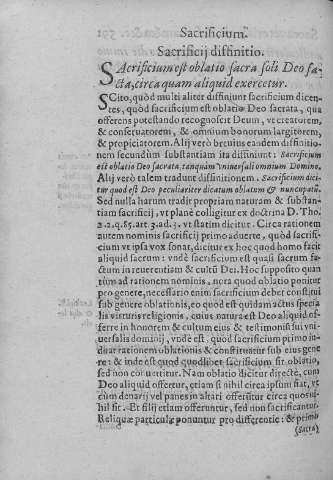 Sacrificium.
Sacrificij diffinitio.
SAcrificium est oblatio sacra soli Deo fa-
cta, circa quam aliquid exercetur.
SCito, quòd multi aliter diffiniunt sacrificium dicen-
tes, quòd sacrificium est oblatio Deo sacrata, qua
offerens potestando recognoscit Deum, vt creatorem,
& conseruatorem, & omnium bonorum largitorem,
& propiciatorem. Alij verò breuius eandem diffinitio-
nem secundùm substantiam ita diffiniunt: Sacrificium
est oblatio Deo sacrata tanquàm vniuersali omnium Domino.
Alij verò talem tradunt diffinitionem. Sacrificium dici-
tur quod est Deo peculiariter dicatum oblatum & nuncopatū.
Sed nulla harum tradit propriam naturam & substan-
tiam sacrificij, vt planè colligitur ex doctrina D. Tho.
2.2.q.85.art.3.ad.3. vt statim dicitur. Circa rationem
autem nominis sacrificij primo aduerte, quòd sacrifi-
cium vt ipsa vox sonat, dicitur ex hoc quod homo facit
aliquid sacrum: vndè sacrificium est quasi sacrum fa-
ctum in reuerentiam & cultū Dei. Hoc supposito quan
tùm ad rationem nominis, nota quod oblatio ponitur
pro genere, necessario enim sacrificium debet constitui
sub genere oblationis, eo quod est quidam actus specia
lis virtutis religionis, cuius natura est Deo aliquid of-
ferre in honorem & cultum eius & testimonii sui vni-
uersalis dominij, vndè est, quòd sacrificium primo in-
duat rationem oblationis & constituatur sub eius gene
re: & inde est quòd quodlibet sacrificium sit oblatio,
sed non conuertitur. Nam oblatio dicitur directè, cum
Deo aliquid offertur, etiam si nihil circa ipsum fiat, vt
cùm denarij vel panes in altari offeruntur circa quos ni-
hil fit. Et filij etiam offeruntur, sed non sacrificantur.
Reliquæ particulæ ponuntur pro differentie: & primò
(sacra)